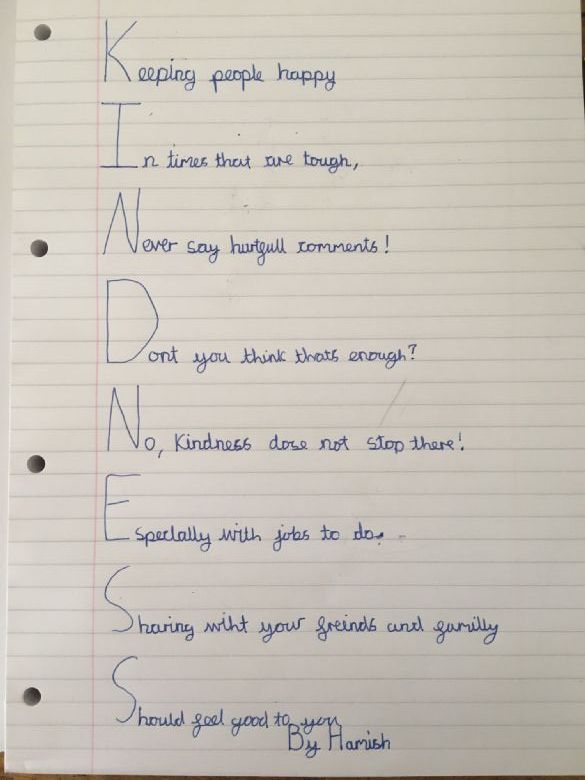 Keeping people happy
In times that are tough,
Never say hurtfull comments!
Dont you think thats enough?
No, Kindness dose not stop there!
Especially with jobs to do.
Sharing wiht your freinds and familly
Should feel good to you
By Hamish